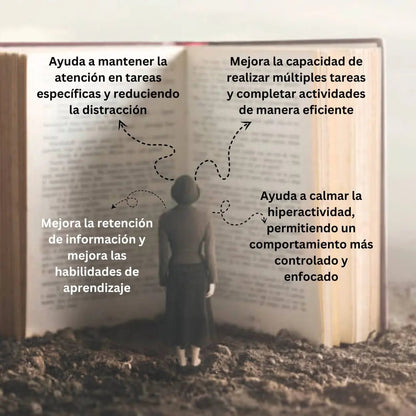 Ayuda a mantener la
atención en tareas
específicas y reduciendo
la distracción
Mejora la capacidad de
realizar múltiples tareas
y completar actividades
de manera eficiente
Mejora la retención
de información y
mejora las
habilidades de
aprendizaje
Ayuda a calmar la
hiperactividad,
permitiendo un
comportamiento más
controlado y
enfocado